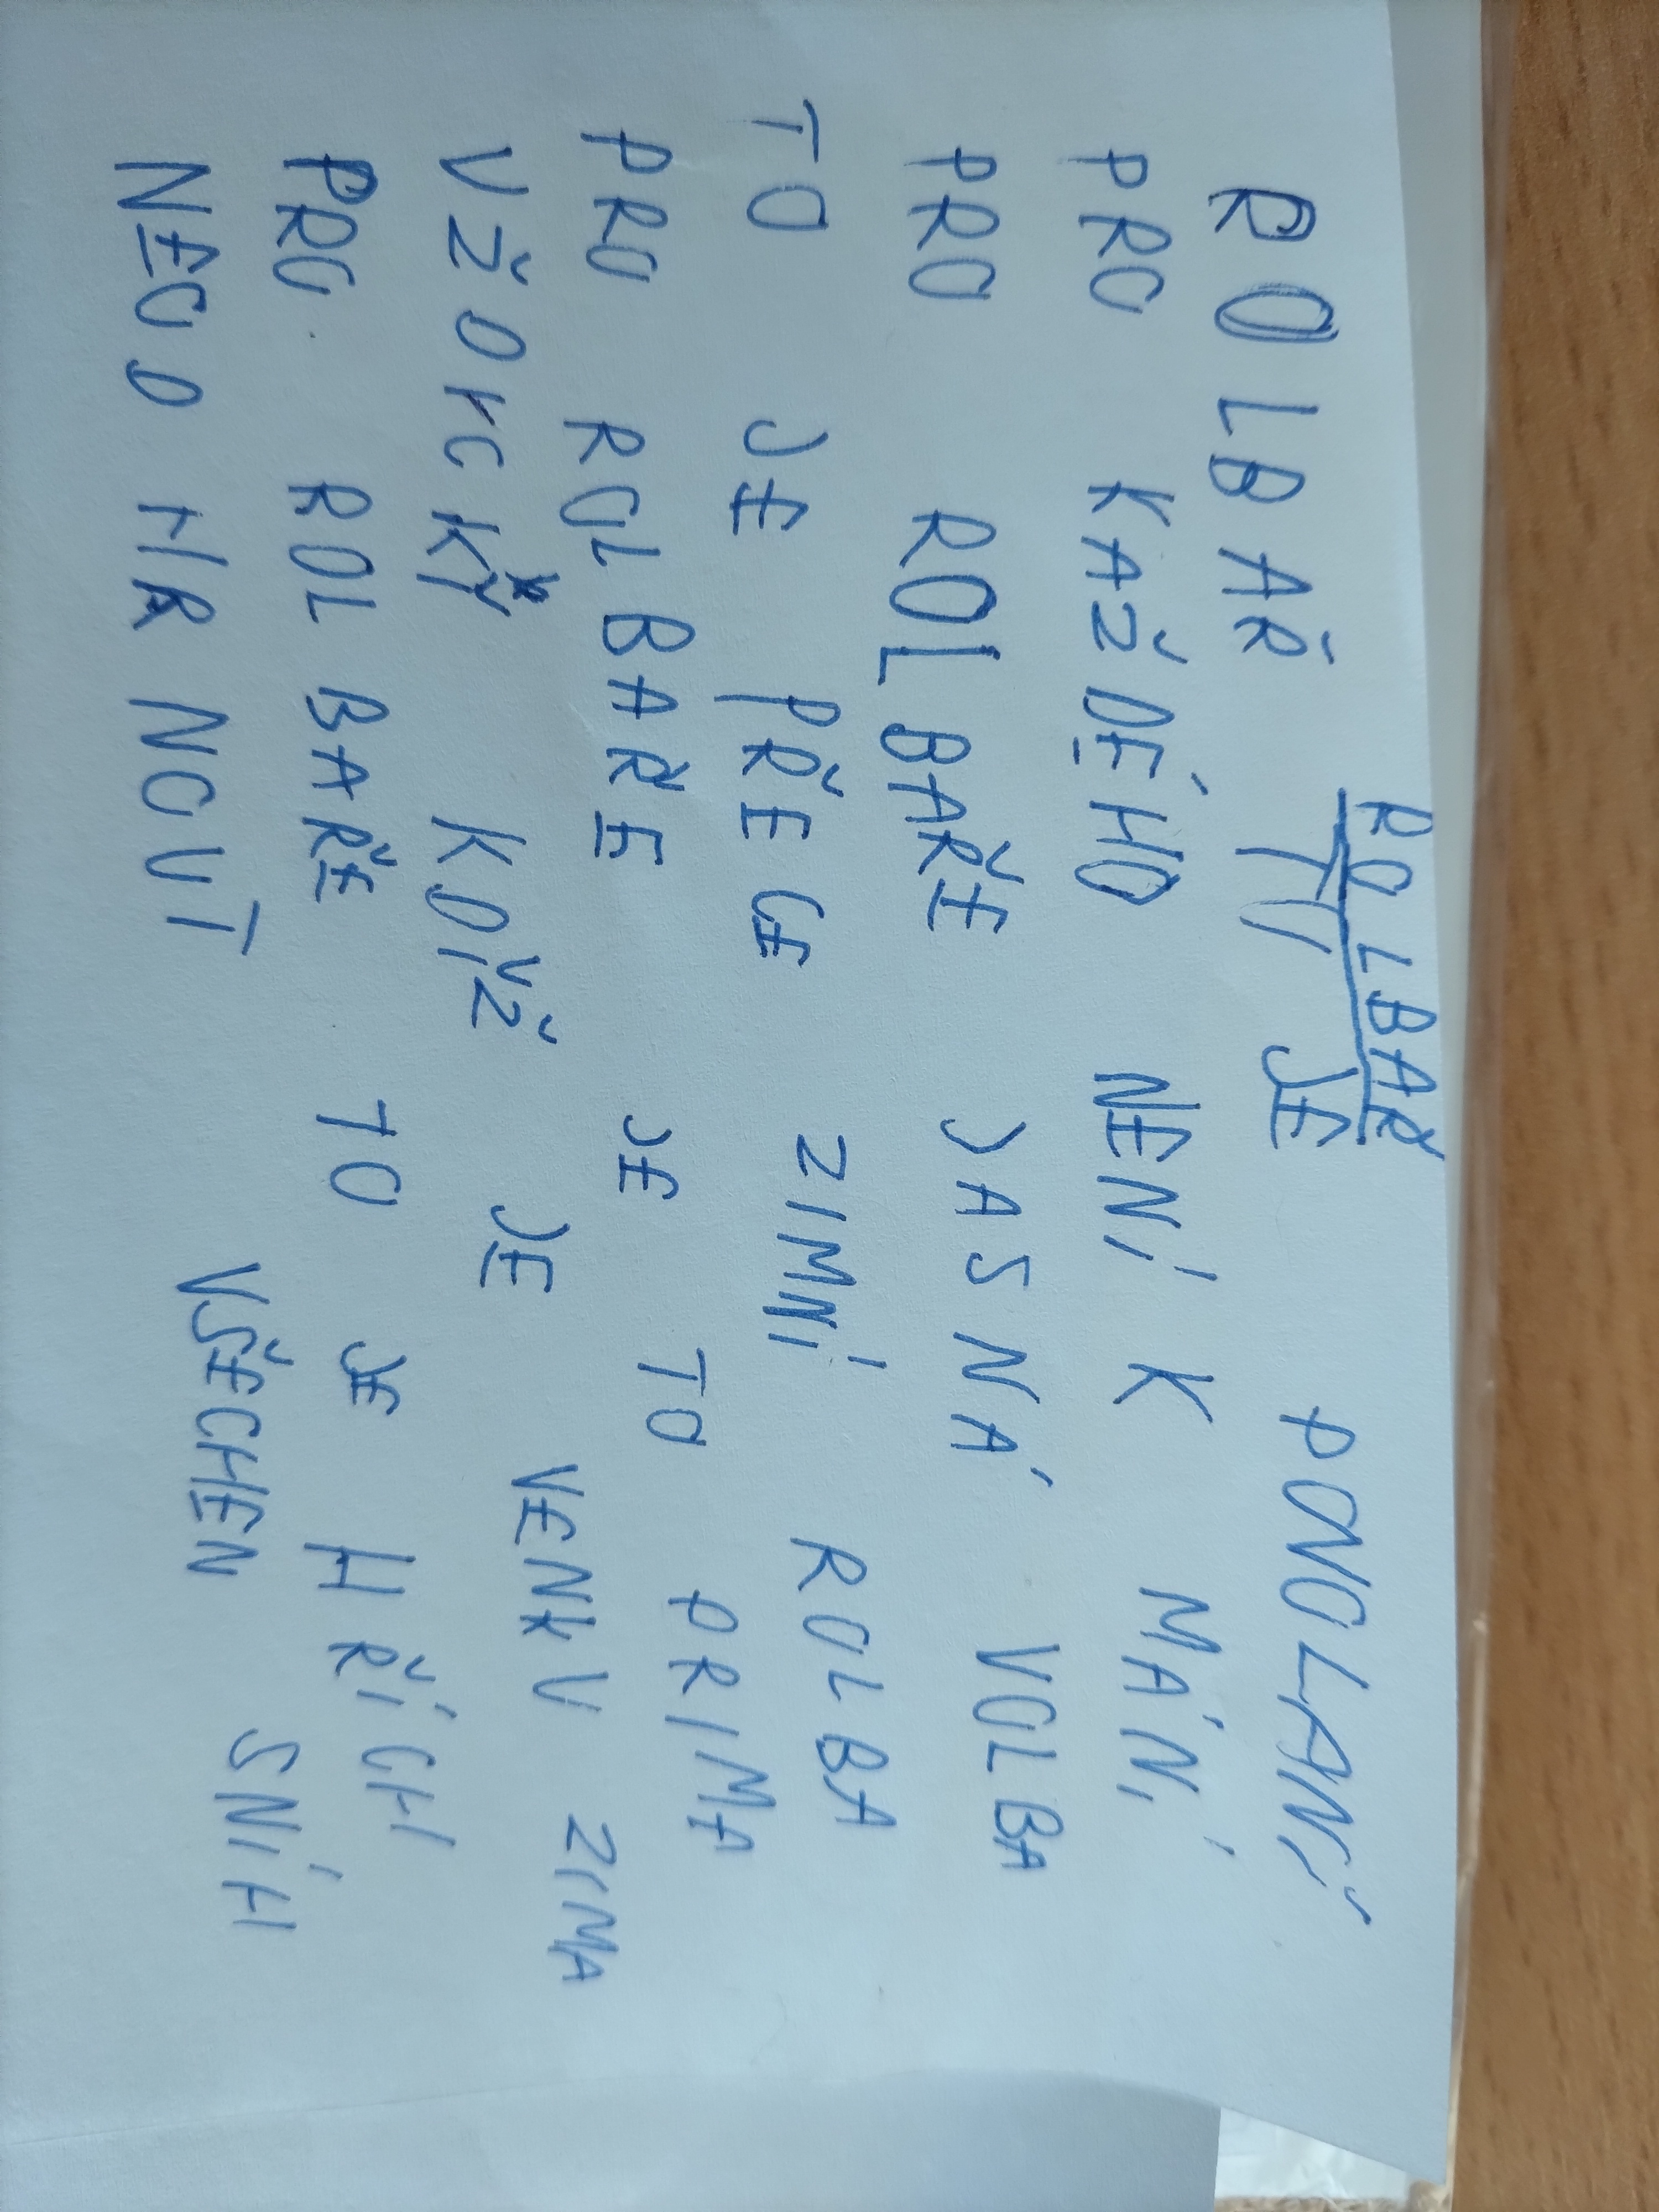 ROLBAŘ
ROLBAŘ TO JE POVOLANÍ
PRO KAŽDÉHO NENÍ K MÁNÍ
PRO ROLBAŘE JASNÁ VOLBA
TO JE PŘECE ZIMNÍ ROLBA
PRO ROLBAŘE JE TO PRIMA
VŽDYCKY KDYŽ JE VENKU ZIMA
PRO ROLBAŘE TO JE HŘÍCH
NEODHRNOUT VŠECHEN SNÍH